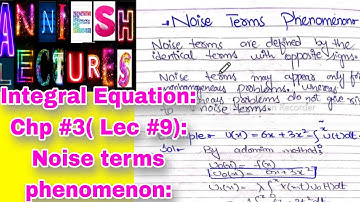 ANNIESH
LECTURES
Integral Equation:
Chp #3( Lec #9):
Noise terms
phenomenon:
→Noise Terms Phenomenon
Noise terms are defined by the
identical terms with opposite signs.
Noise terms may appear only for
problems. whereas
problems do not give
noise terms.
u(x) = 6x + 3x² -
Sol:- By adomian method:
u₀(x) = f(x)
u₀(x) = 6x + 3x²